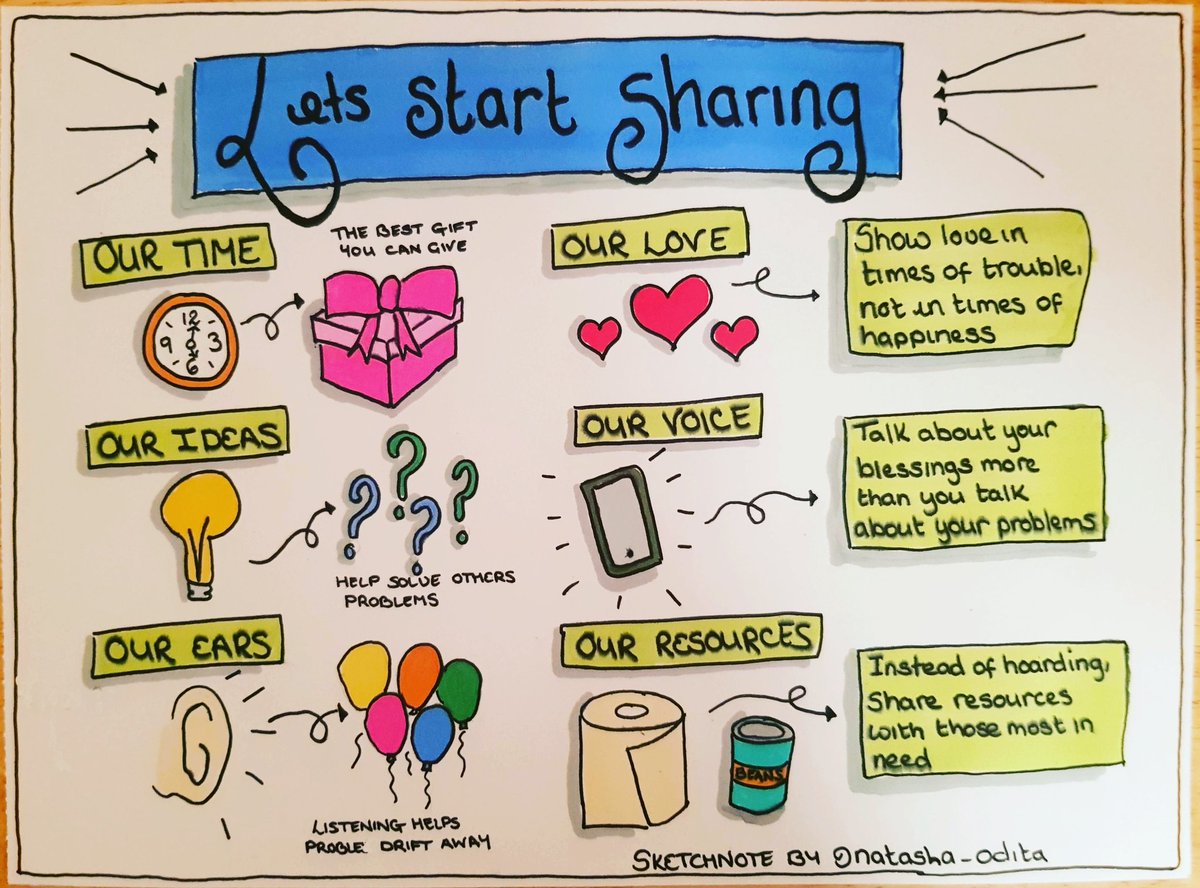 Lets Start Sharing
OUR TIME
THE BEST GIFT
YOU CAN GIVE
12
9 3
6
OUR LOVE
Show love in
times of trouble,
not in times of
happiness
OUR IDEAS
? ? ? ?
HELP SOLVE OTHERS
PROBLEMS
OUR VOICE
Talk about your
blessings more
than you talk
about your problems
OUR EARS
LISTENING HELPS
PROBLE DRIFT AWAY
OUR RESOURCES
BEANS
Instead of hoarding,
Share resources
with those most in
need
SKETCHNOTE BY @natasha_odita